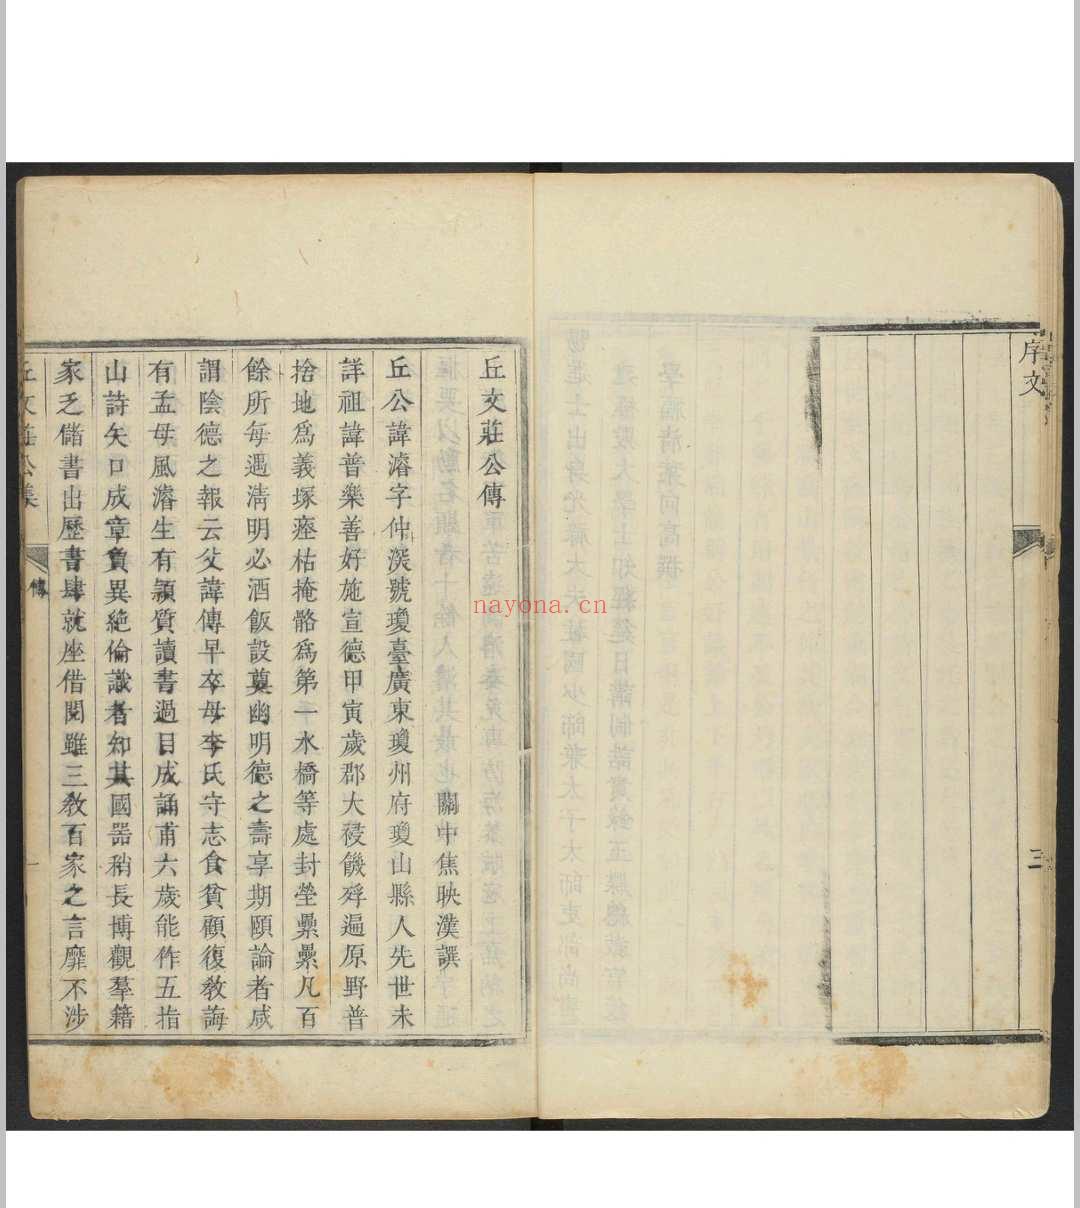 序文
三
丘文莊公傳
關中焦映漢譔
丘公諱濬字仲深號瓊臺廣東瓊州府瓊山縣人先世未
詳祖諱普樂善好施宣德甲寅歲郡大祲饑殍遍原野普
捨地爲義塚瘞枯掩骼爲第一水橋等處封塋纍纍凡百
餘所每遇清明必酒飯設奠幽明德之壽享期頤論者咸
謂陰德之報云父諱傳早卒母李氏守志食貧顧復敎誨
有孟母風濬生有頴質讀書過目成誦甫六歲能作五指
山詩矢口成章負異絶倫識者知其國器稍長博觀羣籍
家乏儲書出歷書肆就座借閱雖三敎百家之言靡不涉
丘文莊公集
傳
一
nayona.cn